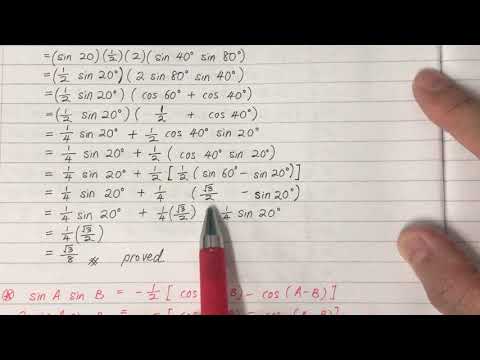 =(sin 20)(1/2)(2)(sin 40° sin 80°)
=(1/2 sin 20°)(2 sin 80° sin 40°)
=(1/2 sin 20°)(cos 60° + cos 40°)
=(1/2 sin 20°)(1/2 + cos 40°)
=1/4 sin 20° + 1/2 cos 40° sin 20°
=1/4 sin 20° + 1/2 (cos 40° sin 20°)
=1/4 sin 20° + 1/2 [1/2 (sin 60° - sin 20°)]
=1/4 sin 20° + 1/4 (√3/2 - sin 20°)
=1/4 sin 20° + 1/4(√3/2) 1/4 sin 20°
=1/4(√3/2)
=√3/8 proved
sin A sin B = -1/2 [cos B) - cos (A-B)]